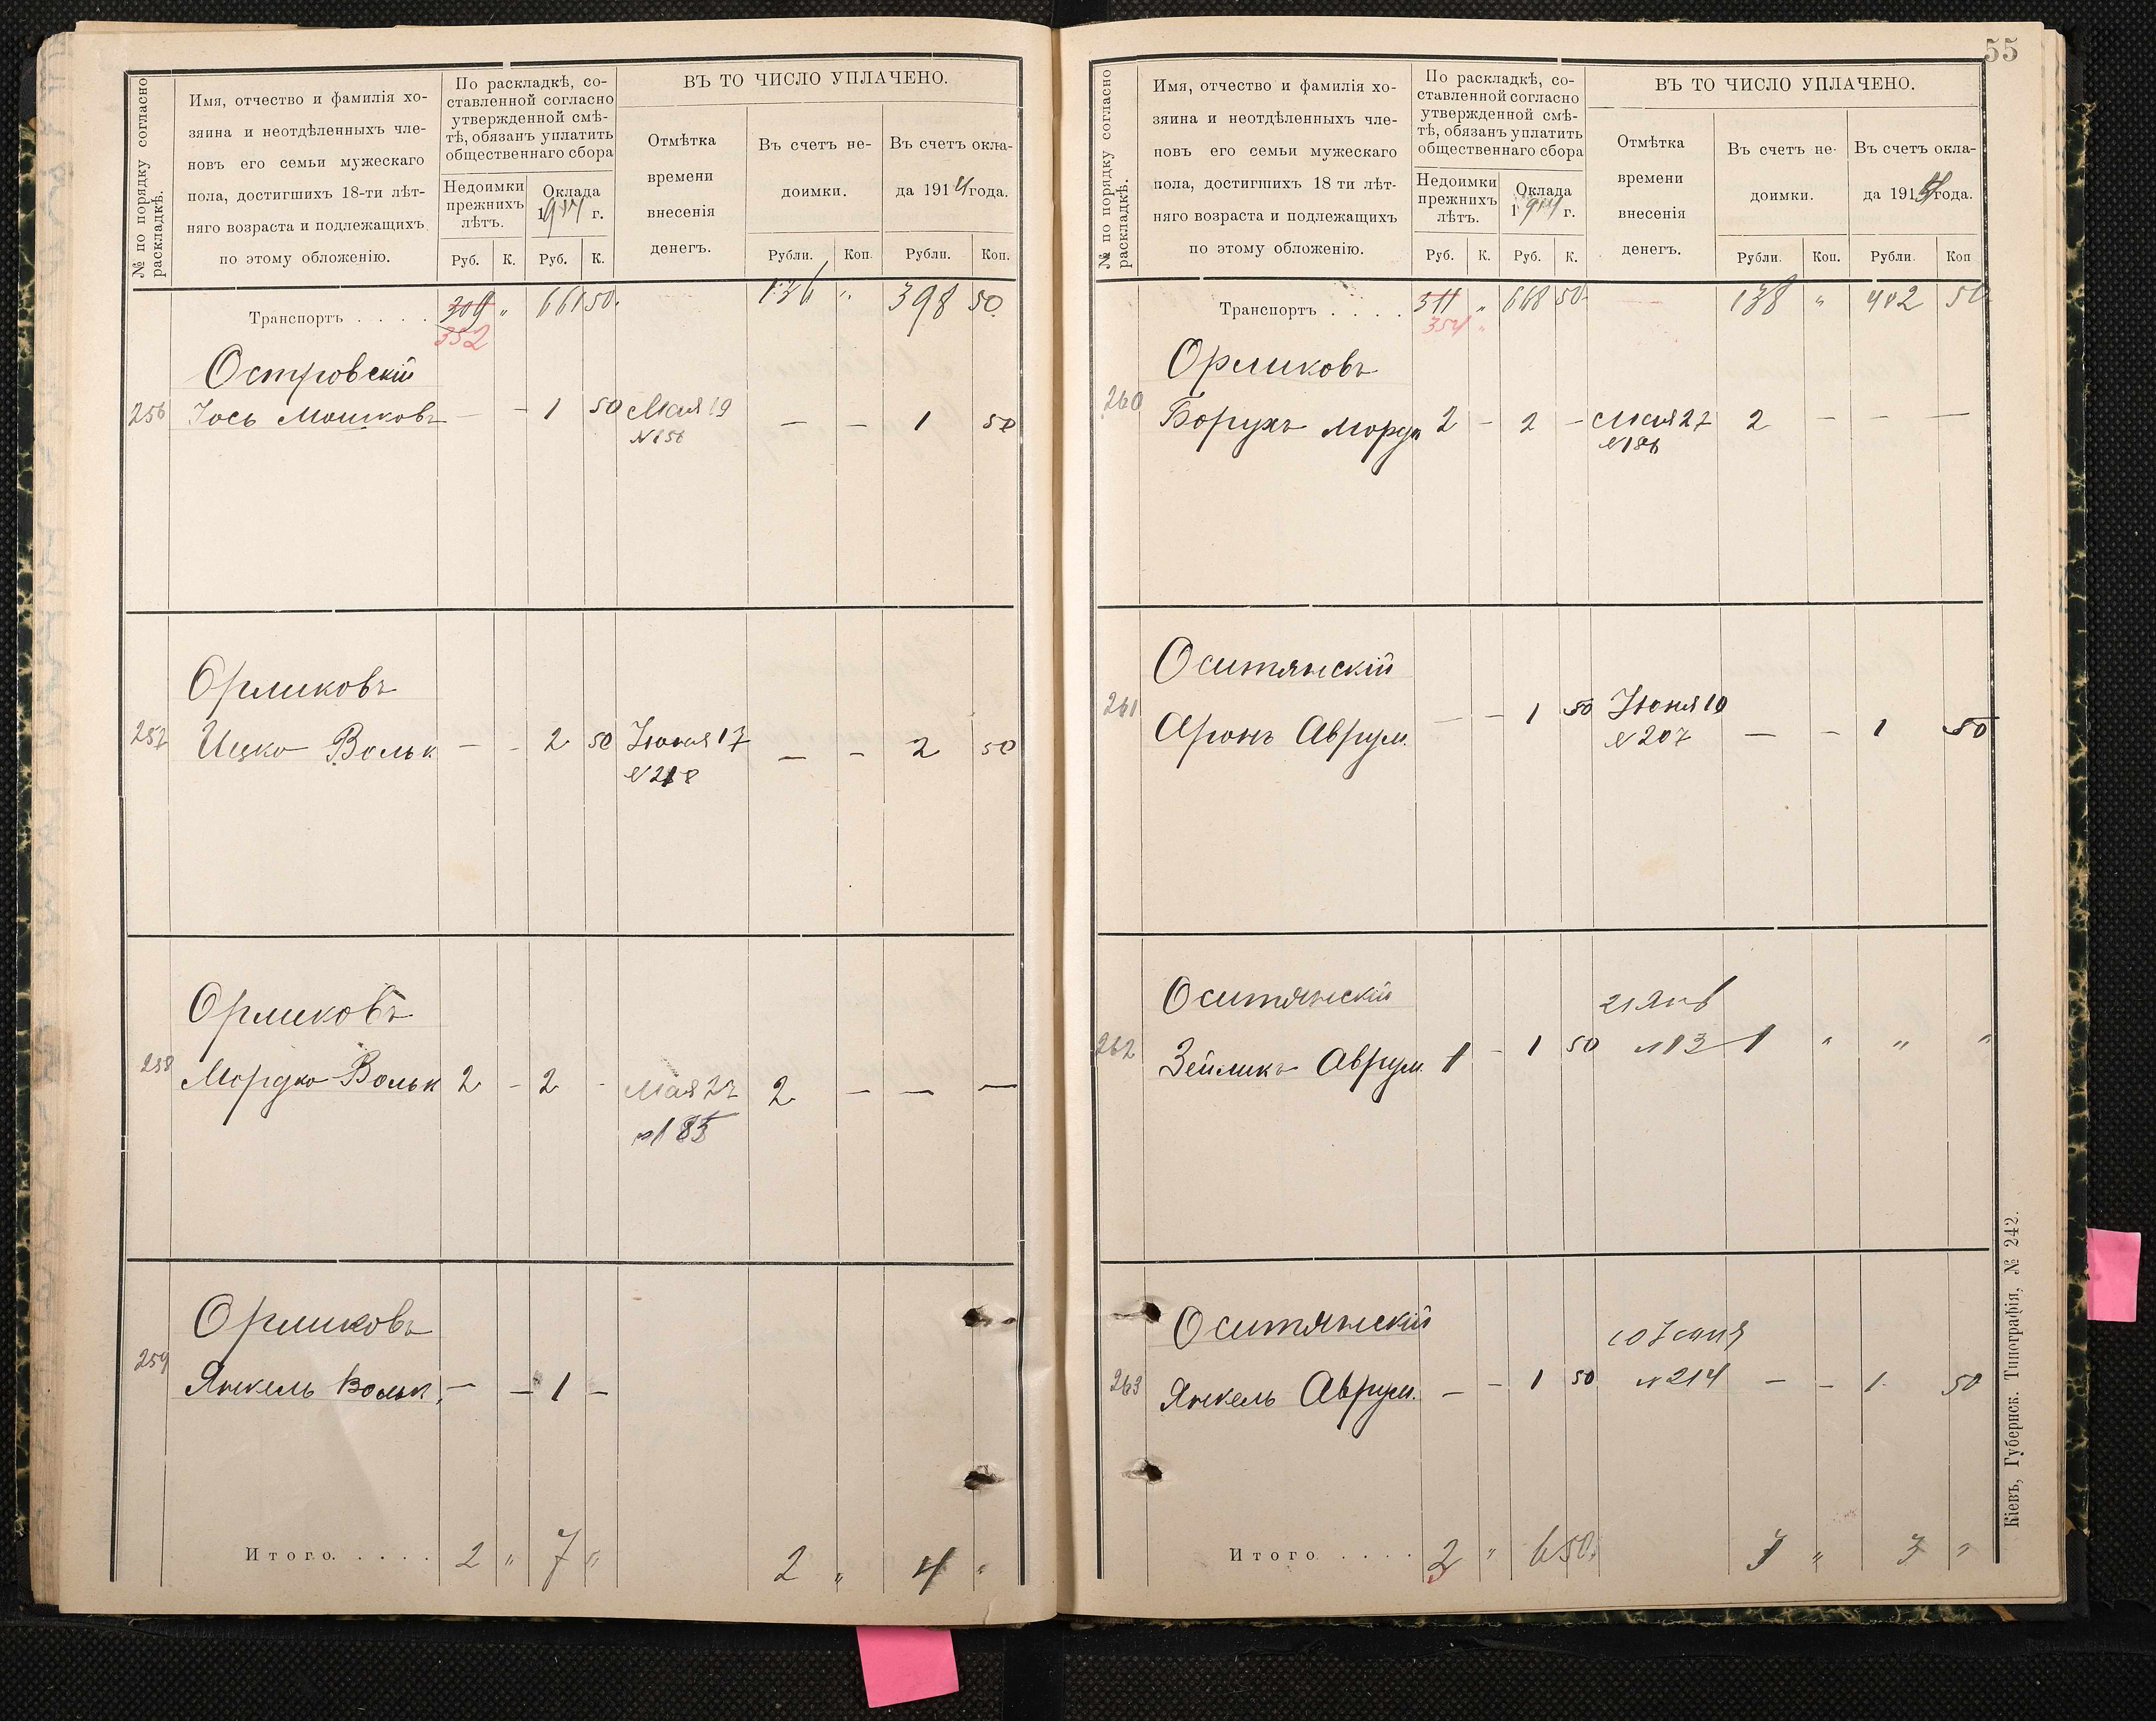 № по порядку согласно
раскладкѣ.
Имя, отчество и фамилія хо-
зяина и неотдѣленныхъ чле-
новъ его семьи мужескаго
пола, достигшихъ 18-ти лѣт-
няго возраста и подлежащихъ
по этому обложенію.
По раскладкѣ, со-
ставленной согласно
утвержденной смѣ-
тѣ, обязанъ уплатить
общественнаго сбора
Недоимки
прежнихъ
лѣтъ.
Оклада
1914 г.
Руб. К. Руб. К.
ВЪ ТО ЧИСЛО УПЛАЧЕНО.
Отмѣтка
времени
внесенія
денегъ.
Въ счетъ не-
доимки.
Въ счетъ окла-
да 1914 года.
Рубли. Коп. Рубли. Коп.
Транспортъ . . . . 309 „ 661 50. 136 „ 398 50.
352
Островскій
256 Іось Мошковъ — — 1 50 Мая 19 — — 1 50
N 156
Орликовъ
257 Ицко Вольк — - 2 50 Іюня 17 — — 2 50
N 218
Орликовъ
258 Мордко Вольк 2 - 2 - Мая 27 2 — — —
N 185
Орликовъ
259 Янкель Вольк. — — 1 —
Итого. . . . . 2 „ 7 „ 2 „ 4 „
55
№ по порядку согласно
раскладкѣ.
Имя, отчество и фамилія хо-
зяина и неотдѣленныхъ чле-
новъ его семьи мужескаго
пола, достигшихъ 18 ти лѣт-
няго возраста и подлежащихъ
по этому обложенію.
По раскладкѣ, со-
ставленной согласно
утвержденной смѣ-
тѣ, обязанъ уплатить
общественнаго сбора
Недоимки
прежнихъ
лѣтъ.
Оклада
1914 г.
Руб. К. Руб. К.
ВЪ ТО ЧИСЛО УПЛАЧЕНО.
Отмѣтка
времени
внесенія
денегъ.
Въ счетъ не-
доимки.
Въ счетъ окла-
да 1914 года.
Рубли. Коп. Рубли. Коп
Транспортъ . . . . 311 „ 668 50 138 „ 402 50
354 „
Орликовъ
260 Борухъ Морд 2 - 2 - Мая 27 2 — — —
N 186
Оситянскій
261 Аронъ Аврум. — — 1 50 Іюня 10 — — 1 50
N 207
Оситянскій
21 Янв
262 Зейликъ Аврум. 1 - 1 50 N 13 1 „ „ „
Оситянскій
10 Іюня
263 Янкель Аврум. — - 1 50 N 214 — — 1 50
Итого . . . . 3 „ 6 50. 3 „ 3 „
Кіевъ, Губернск. Типографія, № 242.